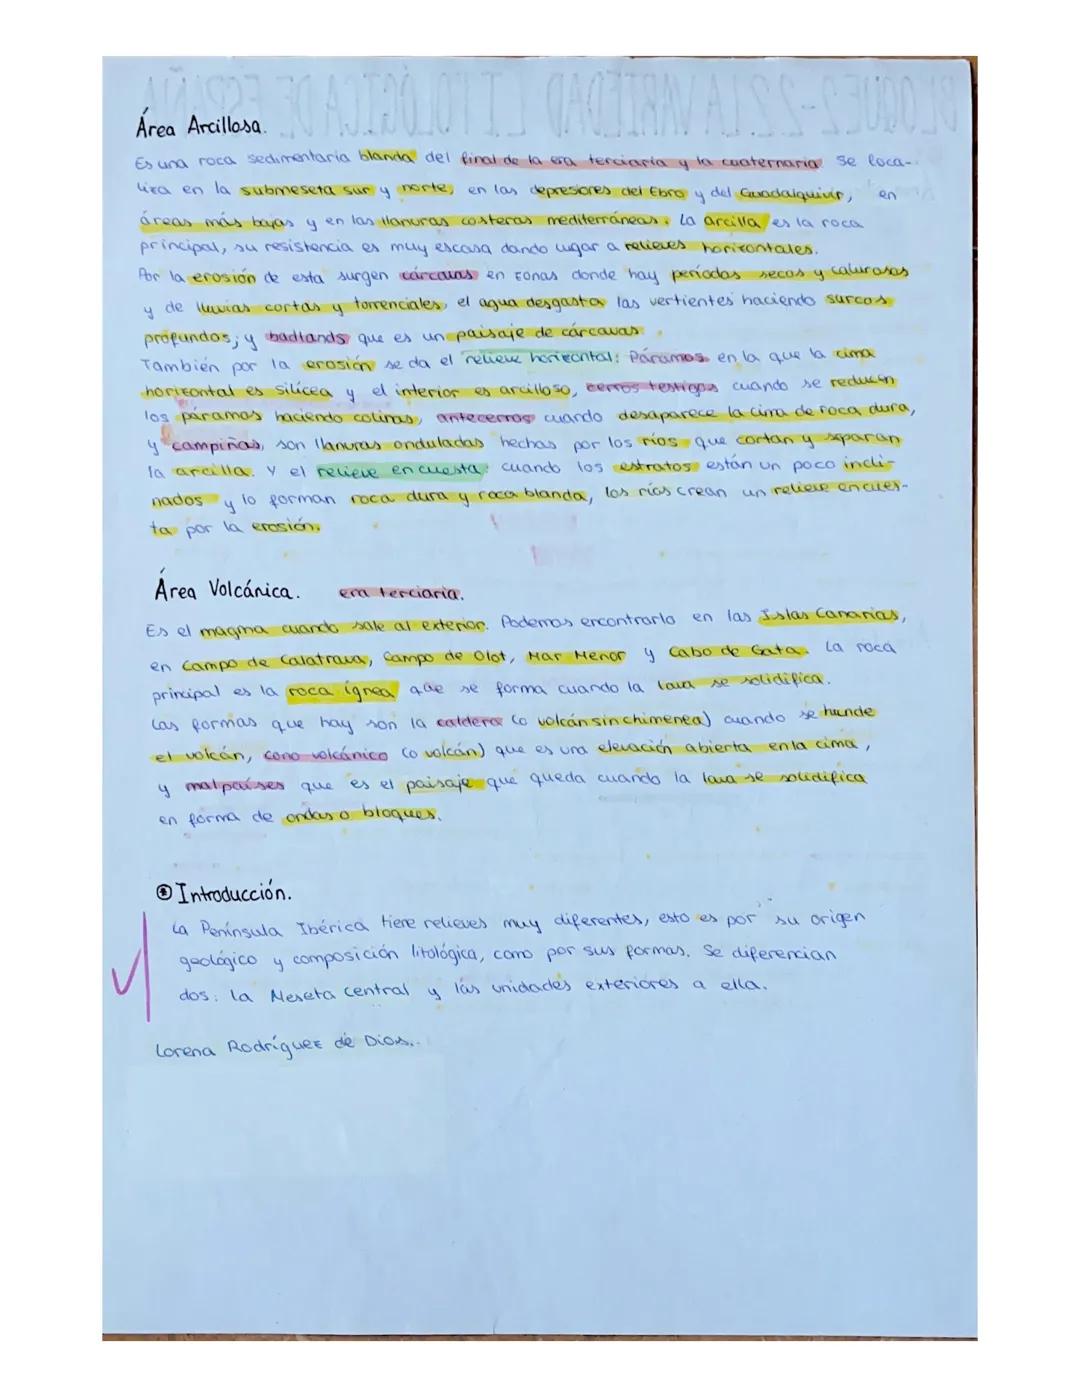 BLOQUE 2-2.2 LA VARIEDAD LITOLÓGICA DE ESPAÑA
Área Arcillosa.
Es una roca sedimentaria blanda del final de la era terciaria y la cuaternaria. Se loca-
liza en la submeseta sur y norte, en las depresiones del Ebro y del Guadalquivir, en
áreas más bajas y en las llanuras costeras mediterráneas. La arcilla es la roca
principal, su resistencia es muy escasa dando lugar a relieves horizontales.
Por la erosión de esta surgen cárcavas en zonas donde hay períodos secos y calurosos
y de lluvias cortas y torrenciales, el agua desgasta las vertientes haciendo surcos
profundos; y badlands que es un paisaje de cárcavas.
También por la erosión se da el relieve horizontal: Páramos en la que la cima
horizontal es silícea y el interior es arcilloso, cerros testigos cuando se reducen
los páramos haciendo colinas, antecerros cuando desaparece la cima de roca dura,
y campiñas, son llanuras onduladas hechas por los ríos que cortan y separan
la arcilla. Y el relieve en cuesta: cuando los estratos están un poco incli-
nados y lo forman roca dura y roca blanda, los ríos crean un relieve en cues-
ta por la erosión.
Área Volcánica. era terciaria.
Es el magma cuando sale al exterior. Podemos encontrarlo en las Islas Canarias,
en Campo de Calatrava, Campo de Olot, Mar Menor y Cabo de Gata. La roca
principal es la roca ígnea que se forma cuando la lava se solidifica.
Las formas que hay son la caldera (o volcán sin chimenea) cuando se hunde
el volcán, cono volcánico (o volcán) que es una elevación abierta en la cima,
y malpaíses que es el paisaje que queda cuando la lava se solidifica
en forma de ondas o bloques.
Introducción.
La Península Ibérica tiene relieves muy diferentes, esto es por su origen
geológico y composición litológica, como por sus formas. Se diferencian
dos: la Meseta central y las unidades exteriores a ella.
Lorena Rodríguez de Dios.